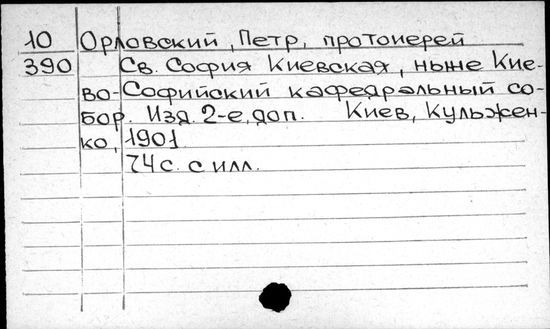 10 Орловский, Петр, протоиерей
390 Св. София Киевская, ныне Кие-
во-Софийский кафедральный со-
бор. Изд. 2-е, доп. Киев, Кульжен-
ко, 1901
74 с. с илл.